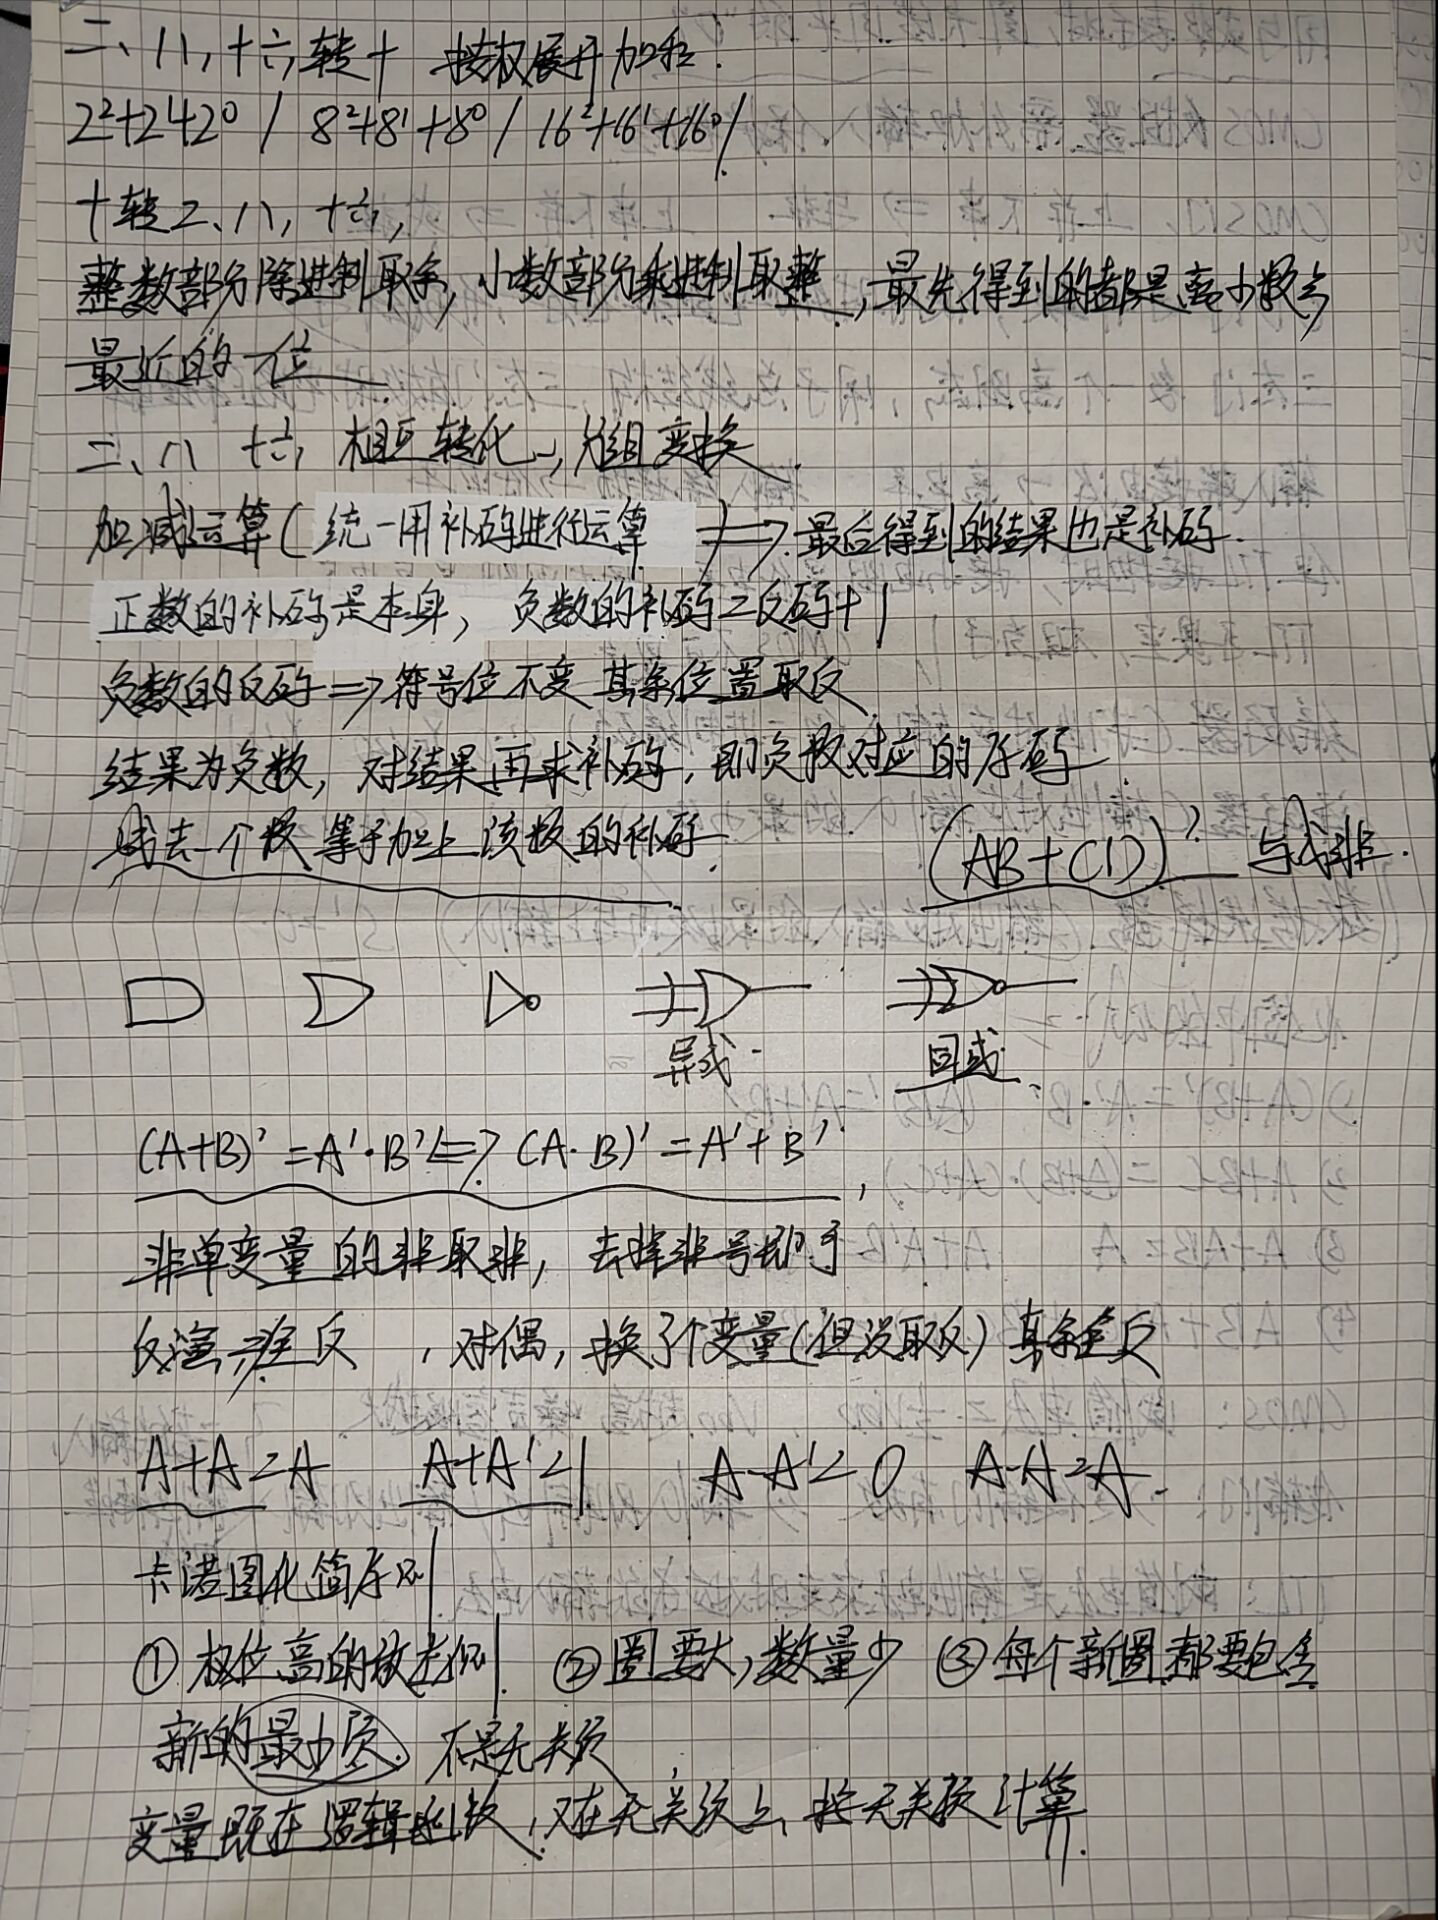 二、八,十六,转十 按权展开加和.
2²+2¹+2⁰ / 8²+8¹+8⁰ / 16²+16¹+16⁰ /
十转2、八,十六,
整数部分除进制取余,小数部分乘进制取整,最先得到的都是离小数点
最近的一位
二、八 十六,相互转化,分组变换.
加减运算(统一用补码进行运算 => 最后得到的结果也是补码.
正数的补码是本身,负数的补码=反码+1
负数的反码=>符号位不变 其余位置取反
结果为负数,对结果再求补码,即负数对应的原码
减去一个数等于加上该数的补码.
(AB+CD)' 与或非.
异或 同或
(A+B)'=A'·B'<=>(A·B)'=A'+B',
非单变量的非取非,去掉非号即可
反演=>全反,对偶,换了个变量(但没取反)其余全反
A+A=A A+A'=1 A·A'=0 A·A=A.
卡诺图化简原则
①权位高的放左侧 ②圈要大,数量少 ③每个新圈都要包含
新的最小项.不是无关项
变量既在逻辑函数,又在无关项上,按无关项计算.